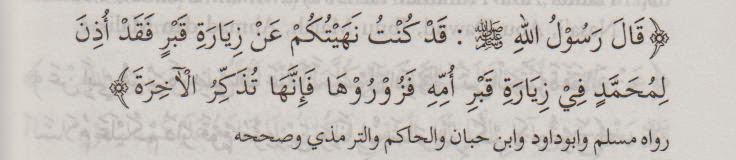 ﴿قَالَ رَسُوْلُ اللهِ ﷺ : قَدْ كُنْتُ نَهَيْتُكُمْ عَنْ زِيَارَةِ قَبْرٍ فَقَدْ أُذِنَ
لِمُحَمَّدٍ فِيْ زِيَارَةِ قَبْرِ أُمِّهِ فَزُوْرُوْهَا فَإِنَّهَا تُذَكِّرُ الْآخِرَةَ﴾
رواه مسلم وابوداود وابن حبان والحاكم والتر مذي وصححه